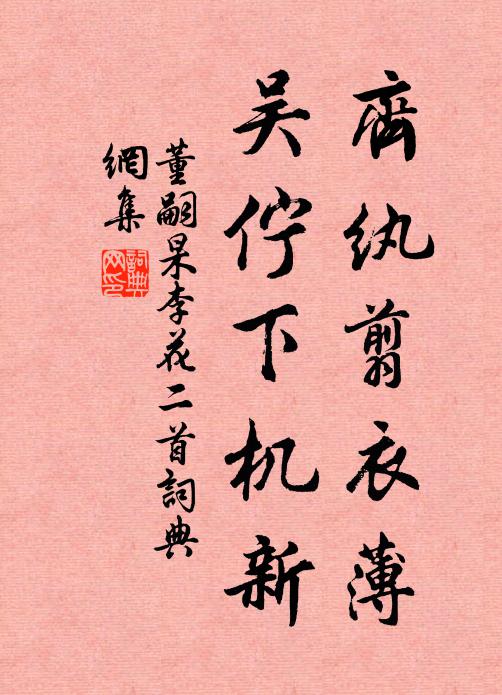 齊纨翦衣薄
吴佇下机新
董嗣杲李花二首詞典
網集
詞典
网印